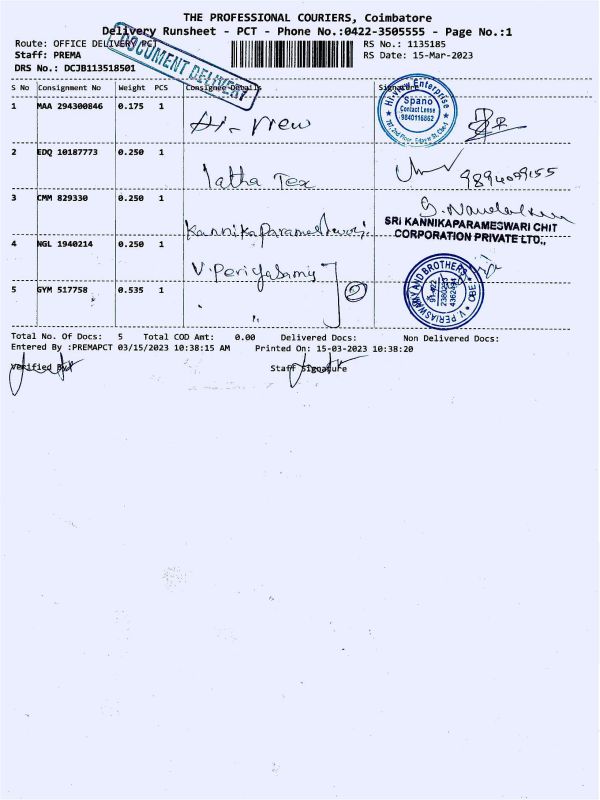 THE PROFESSIONAL COURIERS, Coimbatore
Delivery Runsheet - PCT - Phone No.:0422-3505555 - Page No.:1
Route: OFFICE DELIVERY(PC)
RS No.: 1135185
Staff: PREMA
RS Date: 15-Mar-2023
DRS No.: DCJB113518501
DOCUMENT DELIVERY
S No Consignment No Weight PCS Consignee Details Signature
1 MAA 294300846 0.175 1 Hi-view
Hi-view Enterprise
Spano
Contact Lense
9840116862
2 EDQ 10187773 0.250 1 latha Tex 9894099155
3 CMM 829330 0.250 1 Kannikaparameshwari
SRI KANNIKAPARAMESWARI CHIT
CORPORATION PRIVATE LTD.,
4 NGL 1940214 0.250 1 V.Periyasamy
5 GYM 517758 0.535 1 " 2
V. PERIASWAMY AND BROTHERS
Total No. Of Docs: 5 Total COD Amt: 0.00 Delivered Docs: Non Delivered Docs:
Entered By :PREMAPCT 03/15/2023 10:38:15 AM Printed On: 15-03-2023 10:38:20
Verified By
Staff Signature